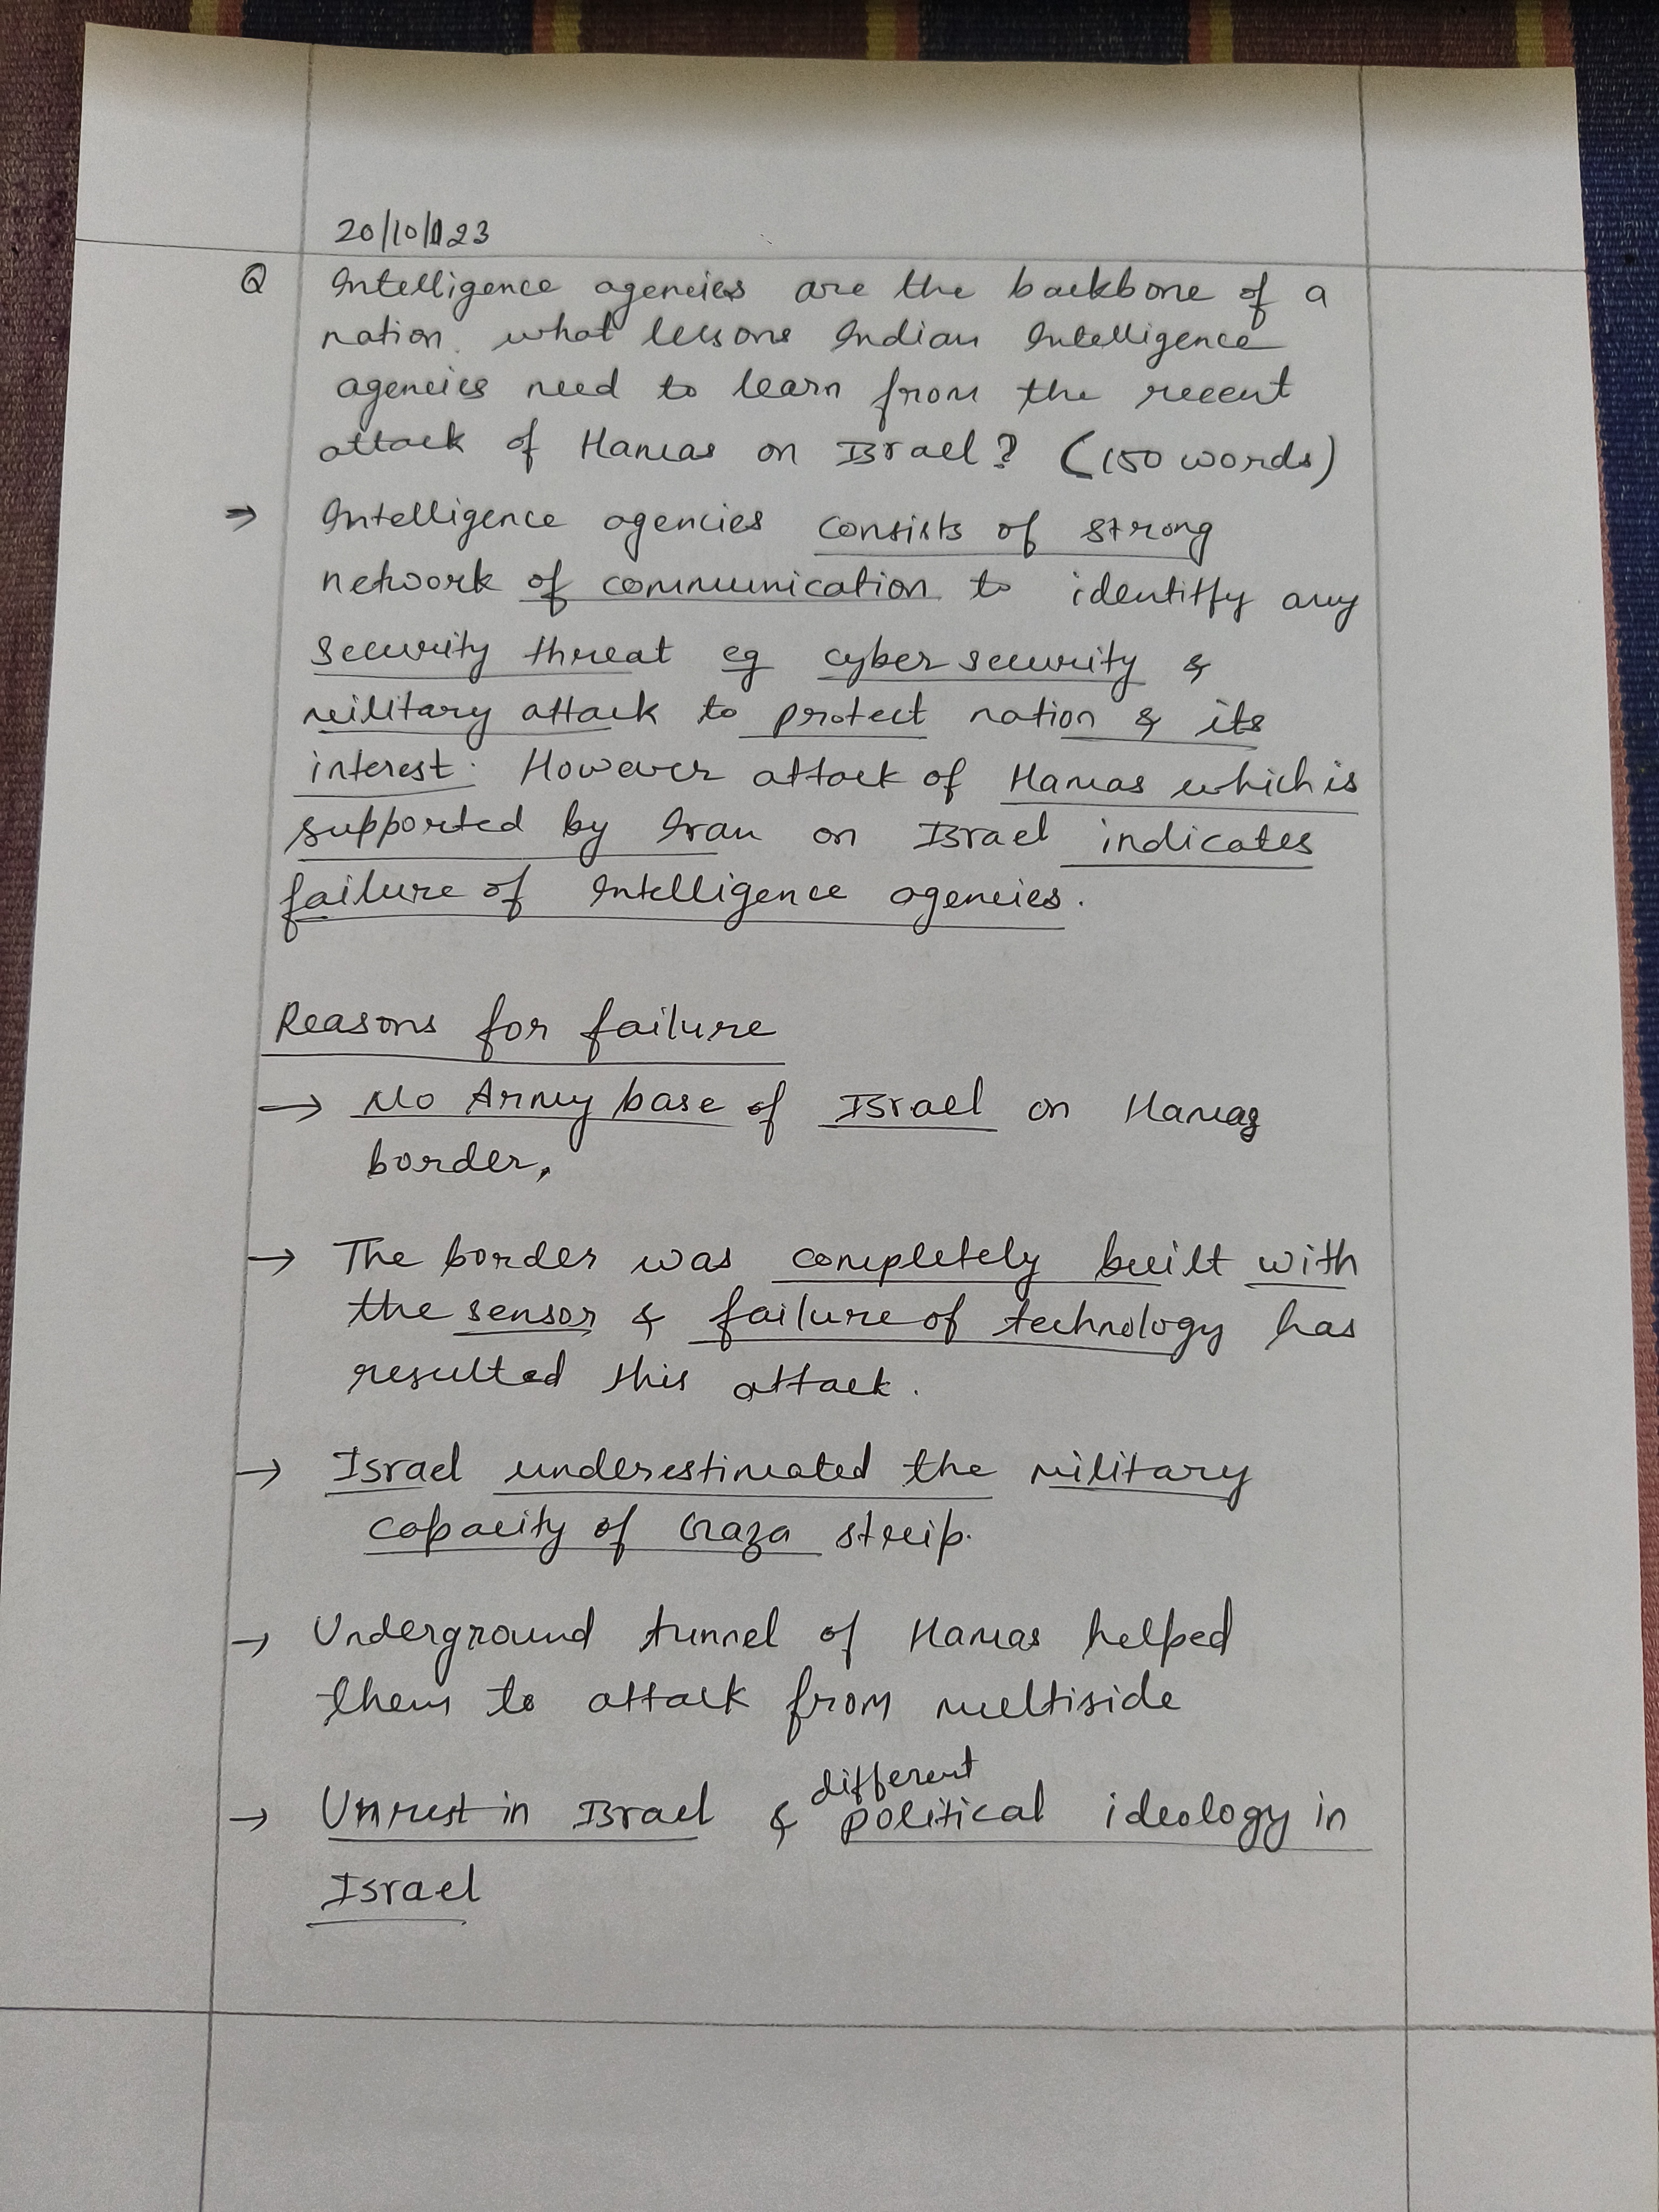 20/10/23
Q Intelligence agencies are the backbone of a
nation. what lessons Indian Intelligence
agencies need to learn from the recent
attack of Hamas on Israel? (150 words)
⇒ Intelligence agencies consists of strong
network of communication to identitfy any
security threat eg cyber security &
military attack to protect nation & its
interest. However attack of Hamas which is
supported by Iran on Israel indicates
failure of Intelligence agencies.
Reasons for failure
→ No Army base of Israel on Hamas
border.
→ The border was completely built with
the sensor & failure of technology has
resulted this attack.
→ Israel underestimated the military
capacity of Graza streip.
→ Underground tunnel of Hamas helped
them to attack from multiside
→ Unrest in Israel & different political ideology in
Israel